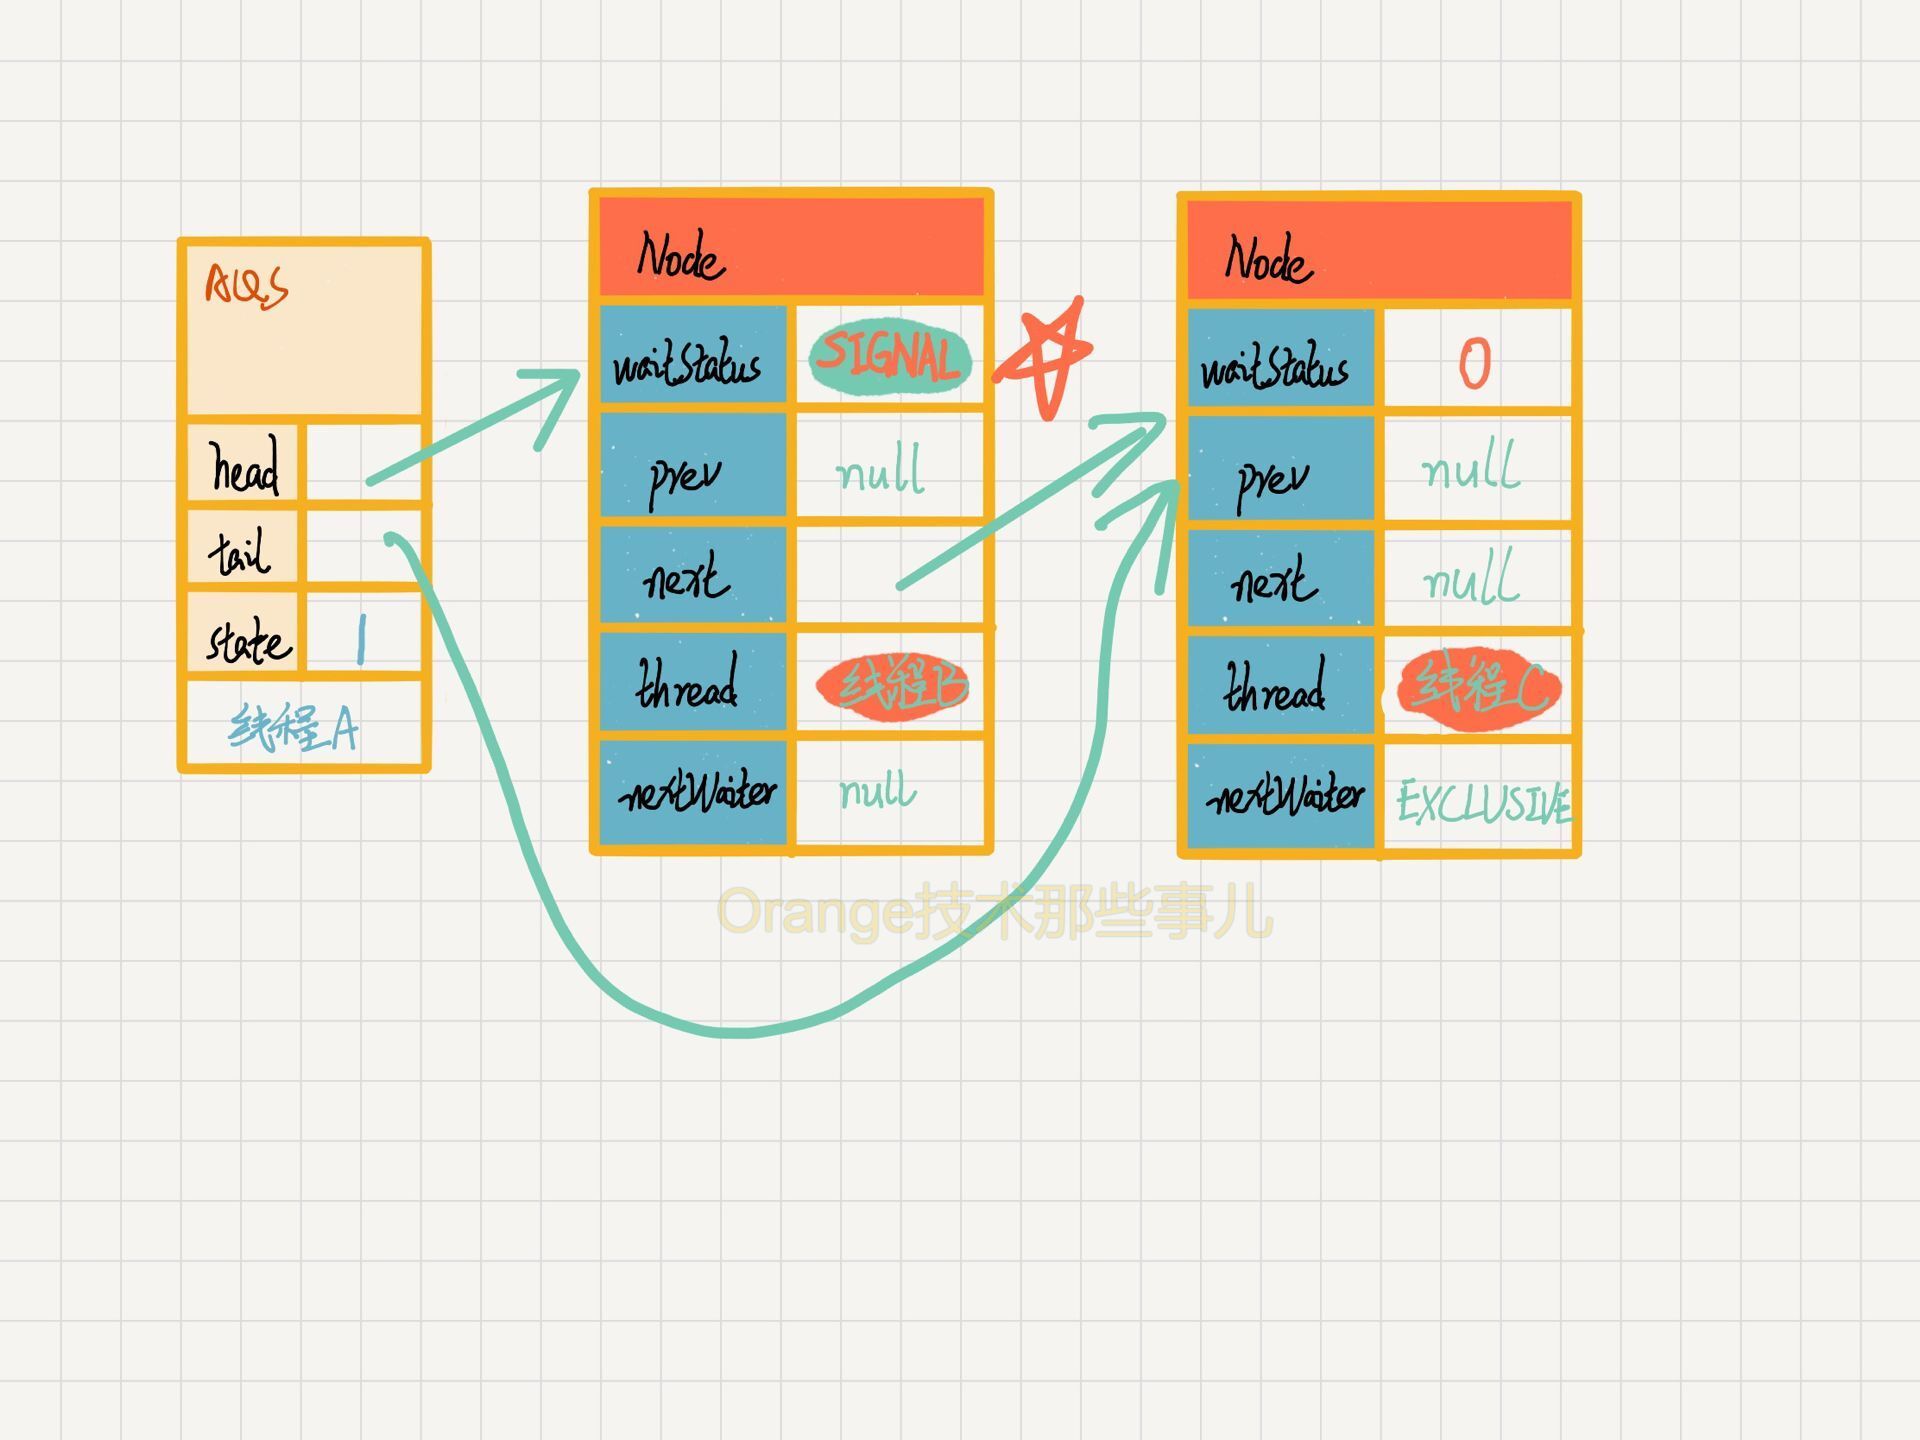 AQS
head
tail
state 1
线程A
Node
waitStatus SIGNAL
prev null
next
thread 线程B
nextWaiter null
Node
waitStatus 0
prev null
next null
thread 线程C
nextWaiter EXCLUSIVE
Orange技术那些事儿